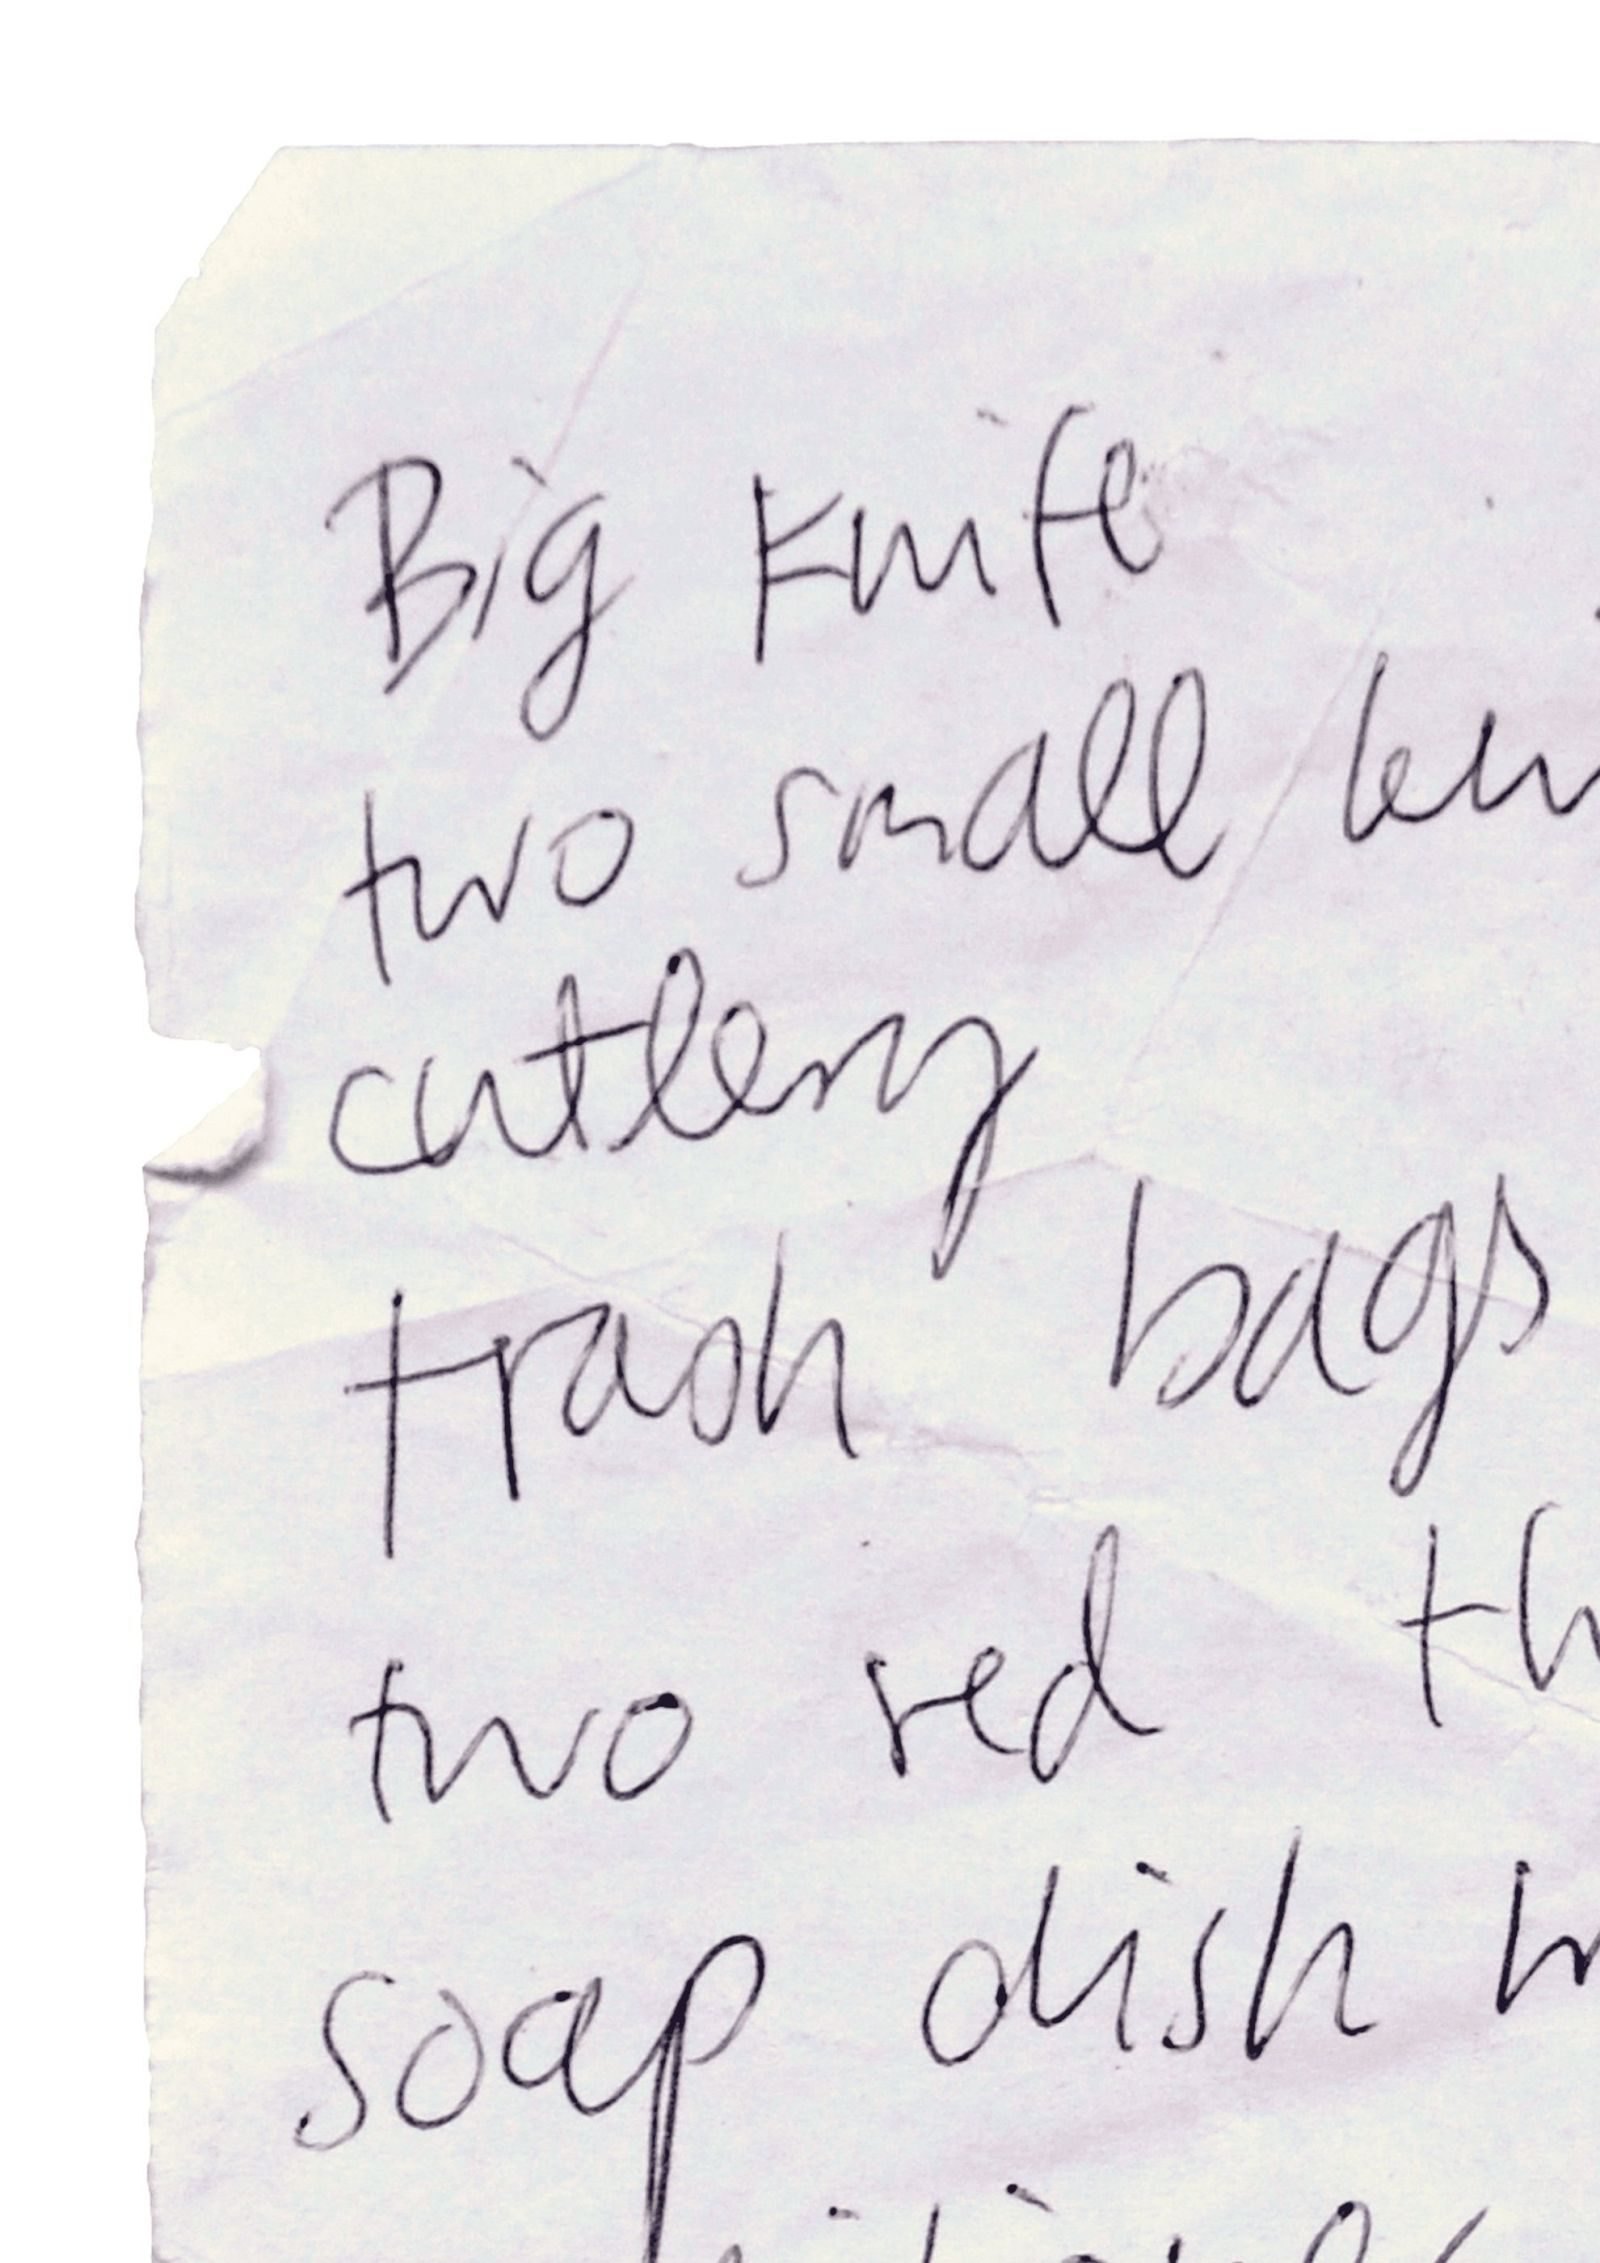 Big knife
two small kni
cutlery
trash bags
two red th
soap dish